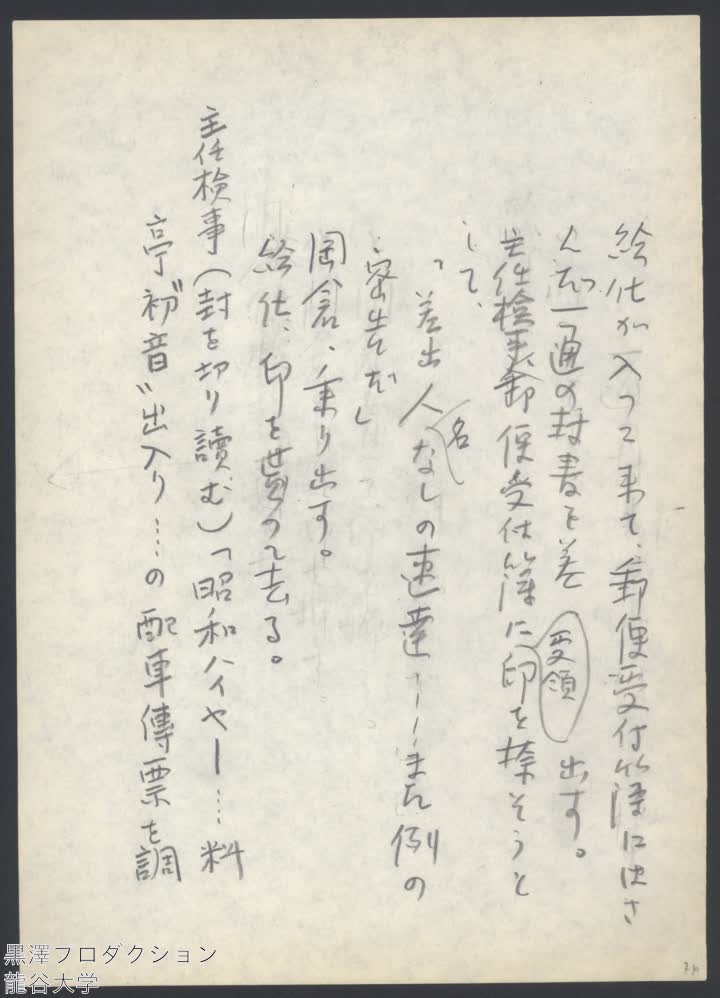 給仕が入って来て、郵便受付簿にはさ
んだ一通の封書を差出す。
主任検事、郵便受付簿に受領印を捺そうと
して、
「差出人名なしの速達……また例の
密告だ」
岡倉、乗り出す。
給仕、印を貰って去る。
主任検事（封を切り読む）「昭和ハイヤー…料
亭〝初音〟出入り…の配車傳票を調
黒澤プロダクション
龍谷大学